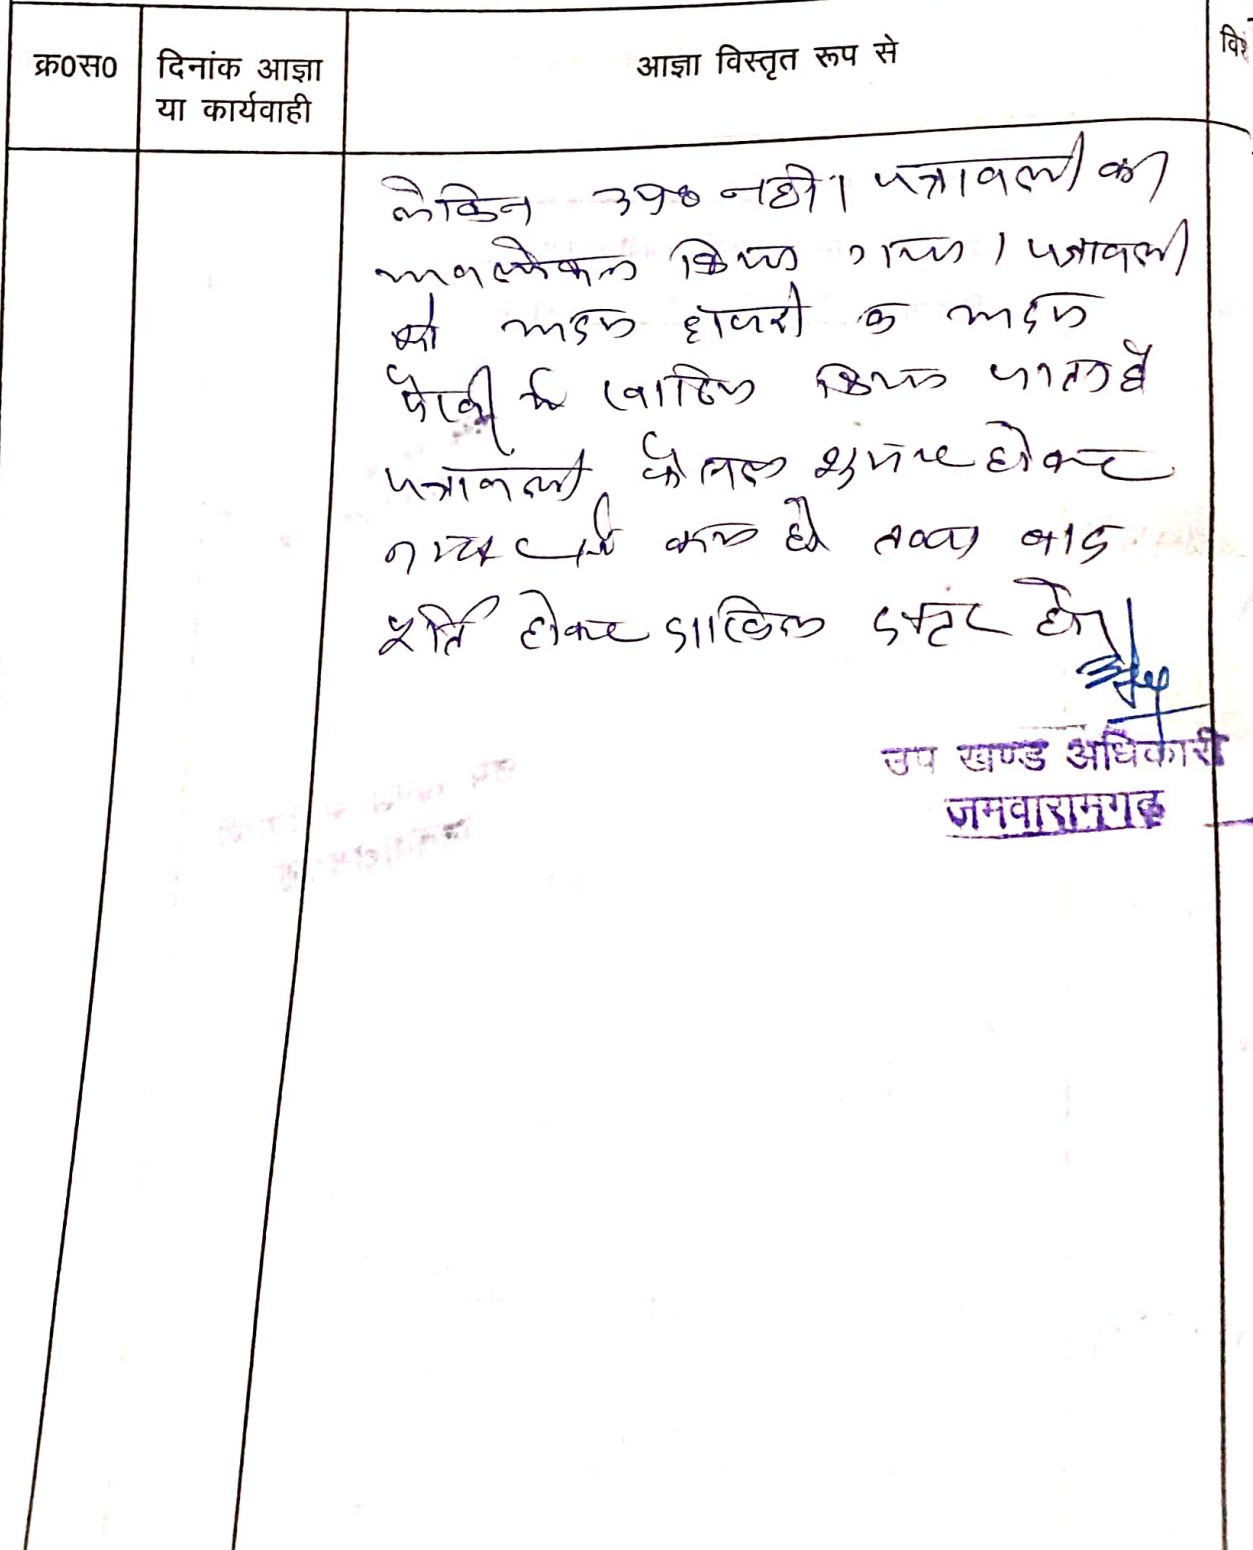 क्र0स0
दिनांक आज्ञा
या कार्यवाही
आज्ञा विस्तृत रूप से
लेकिन उप0 नही। पत्रावली का
अवलोकन किया गया। पत्रावली
को अदम हाजरी व अदम
पैरवी में खारिज किया जाता है
पत्रावली फैसल शुमार होकर
नम्बर से कम हो तथा बाद
पूर्ति होकर दाखिल दफ्तर हो।
उप खण्ड अधिकारी
जमवारामगढ़